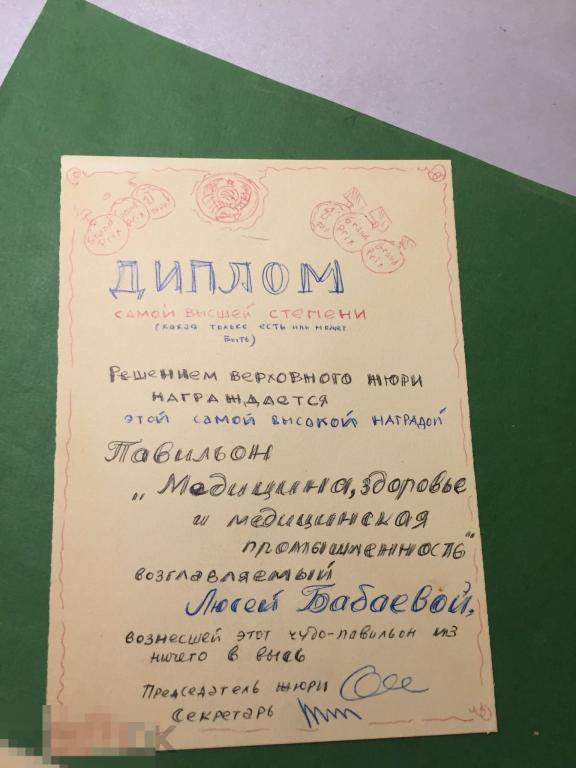 Grand Prix
Grand Prix
Grand Prix
ДИПЛОМ
САМОЙ ВЫСШЕЙ СТЕПЕНИ
(КАКАЯ ТОЛЬКО ЕСТЬ ИЛЬ МОЖЕТ
БЫТЬ)
РЕШЕНИЕМ ВЕРХОВНОГО ЖЮРИ
НАГРАЖДАЕТСЯ
ЭТОЙ САМОЙ ВЫСОКОЙ НАГРАДОЙ
Павильон
„Медицина, здоровье
и медицинская
промышленность"
возглавляемый
Люсей Бабаевой,
вознесшей этот чудо-павильон из
ничего в высь
Председатель жюри
Секретарь